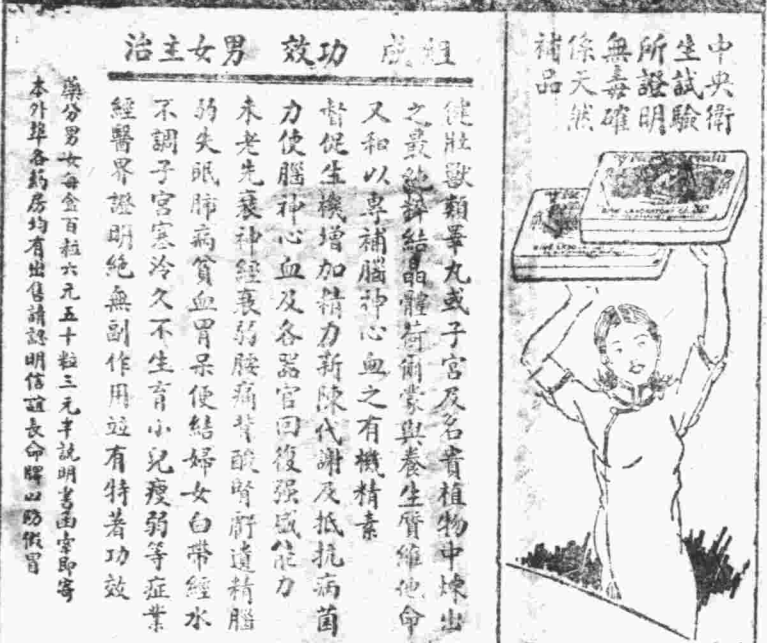 中央衛
生試驗
所證明
無毒確
係天然
補品
組成 功效 男女主治
健壯獸類睪丸或子宮及名貴植物中煉出
之最純粹結晶體荷爾蒙與養生質維他命
又和以專補腦神心血之有機精素
督促生機增加精力新陳代謝及抵抗病菌
力使腦神心血及各器官回復强盛能力
未老先衰神經衰弱腰痛背酸腎虧遺精腦
弱失眠肺病貧血胃呆便結婦女白帶經水
不調子宮寒冷久不生育小兒瘦弱等症業
經醫界證明絕無副作用並有特著功效
藥分男女每盒百粒六元五十粒三元半説明書函索即寄
本外埠各药房均有出售請認明信誼長命牌以防假冒